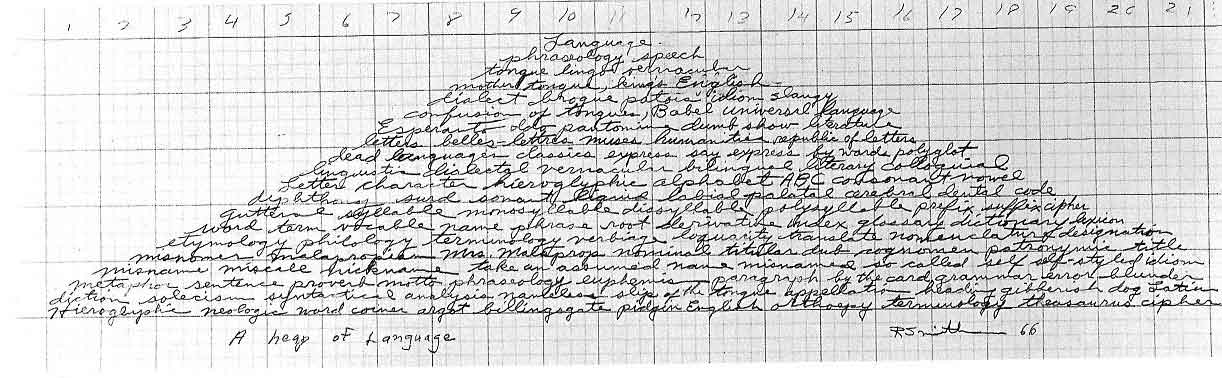 1 2 3 4 5 6 7 8 9 10 11 12 13 14 15 16 17 18 19 20 21
Language
phraseology speech
tongue lingo vernacular
mother tongue, kings English
dialect brogue patois idiom slangy
confusion of tongues, Babel universal language
Esperanto dog pantomim dumb show literature
letters belles-lettres muses humanities republic of letters
dead languages classics express say express by words polyglot
linguistic dialectal vernacular bilingual literary colloquial
Letter character hieroglyphic alphabet ABC consonant vowel
diphthong surd sonant liquid labial palatal cerebral dental code
guttural syllable monosyllable dissyllable polysyllable prefix suffix cipher
word term vocable name phrase root derivative index glossary dictionary lexicon
etymology philology terminology verbiage loquacity translate nomenclature designation
misnomer malapropism Mrs. Malaprop nominal titular dub cognomen patronymic title
misname miscall nickname take an assumed name misnamed so called self self-styled idiom
metaphor sentence proverb motto phraseology euphemism paragraph by the card grammar error blunder
diction solecism syntactical analysis nameless slip of the tongue appellation heading gibberish dog Latin
Hieroglyphic neologic word coiner argot billingsgate pidgin English orthoepy terminology thesaurus cipher
A heap of Language
RSmith 66